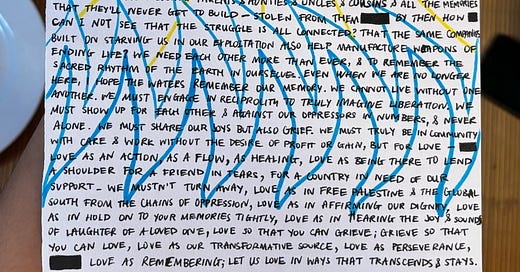 PARENTS & AUNTIES & UNCLES, COUSINS & ALL THE MEMORIES
THAT THEY'LL NEVER GET TO BUILD - STOLEN FROM THEM BY THEN HOW
CAN I NOT SEE THAT THE STRUGGLE IS ALL CONNECTED? THAT THE SAME COMPANIES
BUILT ON STARVING US IN OUR EXPLOITATION ALSO HELP MANUFACTURE WEAPONS OF
ENDING LIFE. WE NEED EACH OTHER MORE THAN EVER, & TO REMEMBER THE
SACRED RHYTHM OF THE EARTH & OURSELVES EVEN WHEN WE ARE NO LONGER
HERE, I HOPE THE WATERS REMEMBER OUR MEMORY. WE CANNOT BE WITHOUT ONE
ANOTHER. WE MUST ENGAGE IN RECIPROCITY TO TRULY IMAGINE LIBERATION. WE
MUST SHOW UP FOR EACH OTHER & AGAINST OUR OPPRESSORS IN NUMBERS, & NEVER
ALONE. WE MUST SHARE OUR JOYS BUT ALSO GRIEF. WE MUST TRULY BE IN COMMUNITY
WITH CARE & WORK WITHOUT THE DESIRE OF PROFIT OR GAIN, BUT FOR LOVE
LOVE AS AN ACTION, AS A FLOW, AS HEALING, LOVE AS BEING THERE TO LEND
A SHOULDER FOR A FRIEND IN TEARS, FOR A COUNTRY IN NEED OF OUR
SUPPORT - WE MUSTN'T TURN AWAY, LOVE AS IN FREE PALESTINE & THE GLOBAL
SOUTH FROM THE CHAINS OF OPPRESSION, LOVE AS IN AFFIRMING OUR DIGNITY, LOVE
AS IN HOLD ON TO YOUR MEMORIES TIGHTLY, LOVE AS IN HEARING THE JOY & SOUNDS
OF LAUGHTER OF A LOVED ONE, LOVE SO THAT YOU CAN GRIEVE; GRIEVE SO THAT
YOU CAN LOVE, LOVE AS OUR TRANSFORMATIVE SOURCE, LOVE AS PERSEVERANCE,
LOVE AS REMEMBERING; LET US LOVE IN WAYS THAT TRANSCENDS & STAYS.